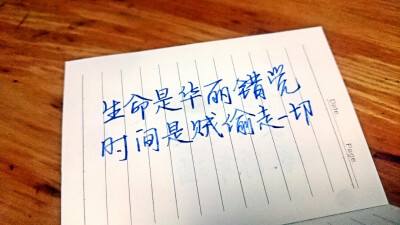 生命是华丽错觉
时间是贼偷走一切
Date
Page